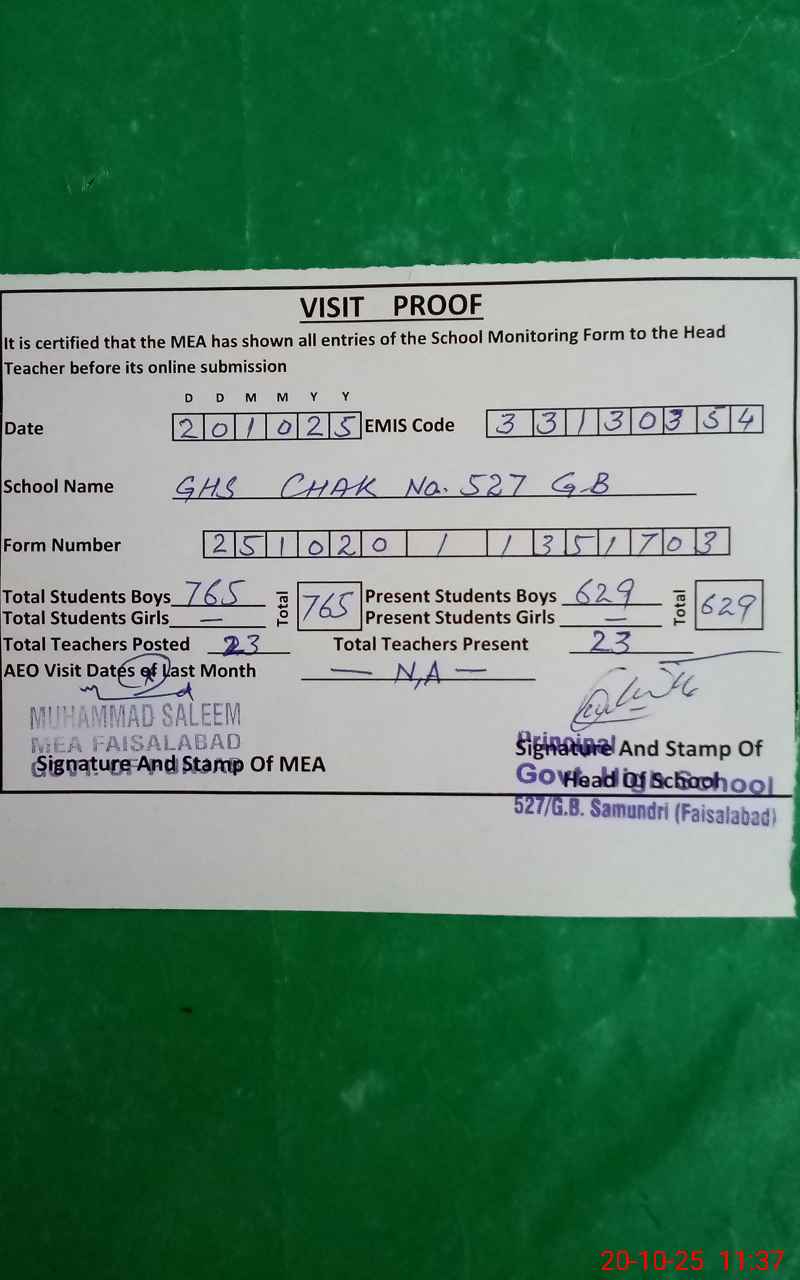 VISIT PROOF
It is certified that the MEA has shown all entries of the School Monitoring Form to the Head
Teacher before its online submission
D D M M Y Y
Date 201025 EMIS Code 33130354
School Name GHS CHAK No. 527 GB
Form Number 251020 1 1351703
Total Students Boys 765 Total 765 Present Students Boys 629 Total 629
Total Students Girls — Present Students Girls —
Total Teachers Posted 23 Total Teachers Present 23
AEO Visit Dates of Last Month — N,A —
MUHAMMAD SALEEM
MEA FAISALABAD
Signature And Stamp Of MEA
Principal
Signature And Stamp Of
Govt. High School
Head Of School
527/G.B. Samundri (Faisalabad)
20-10-25 11:37